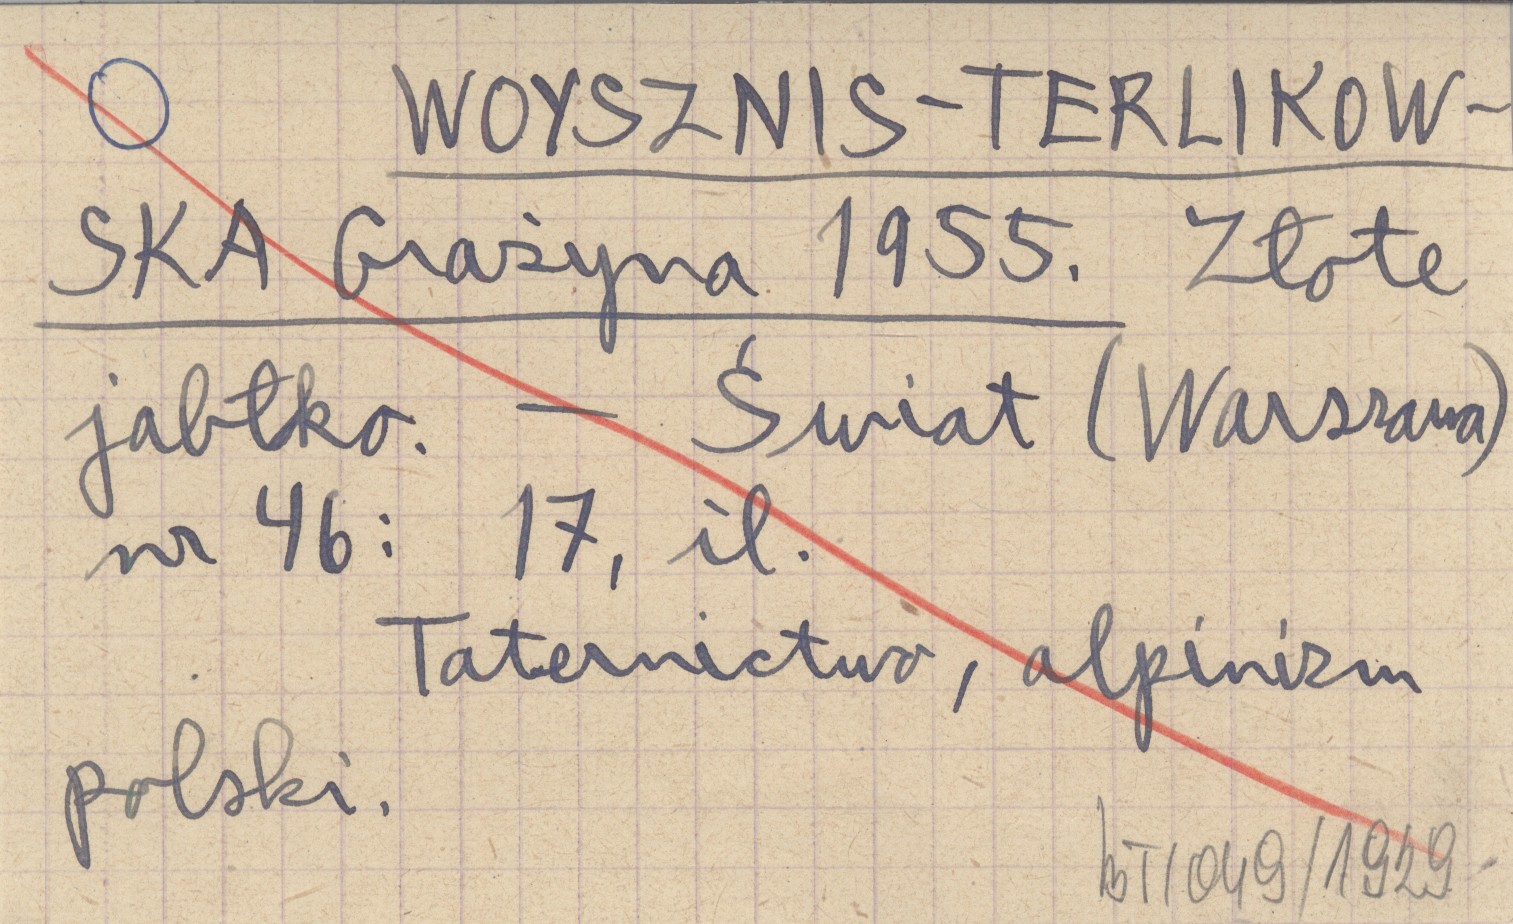 WOYSZNIS-TERLIKOW-
SKA Grażyna 1955. Złote
jabłko. — Świat (Warszawa)
nr 46: 17, il.
Taternictwo, alpinizm
polski.
/1929